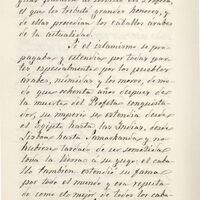 que le tributó grandes honores, y
de ellas procedían los caballos árabes
de la actualidad.
Si el islamismo se pro-
pagaba y estendía por todas par-
tes especialmente por los pueblos
árabes, númidas y los moros, de mo-
do que ochenta años después de
la muerte del Profeta conquista-
dor, su imperio se estendía desde
el Egipto hasta las Indias, desde
hasta Samarkanda y no
hubiera tardado de ser sometida
toda la tierra a su yugo: el caba-
llo también estendió su fama
por todo el mundo y era reputa-
do como el mejor, de todos los caba-